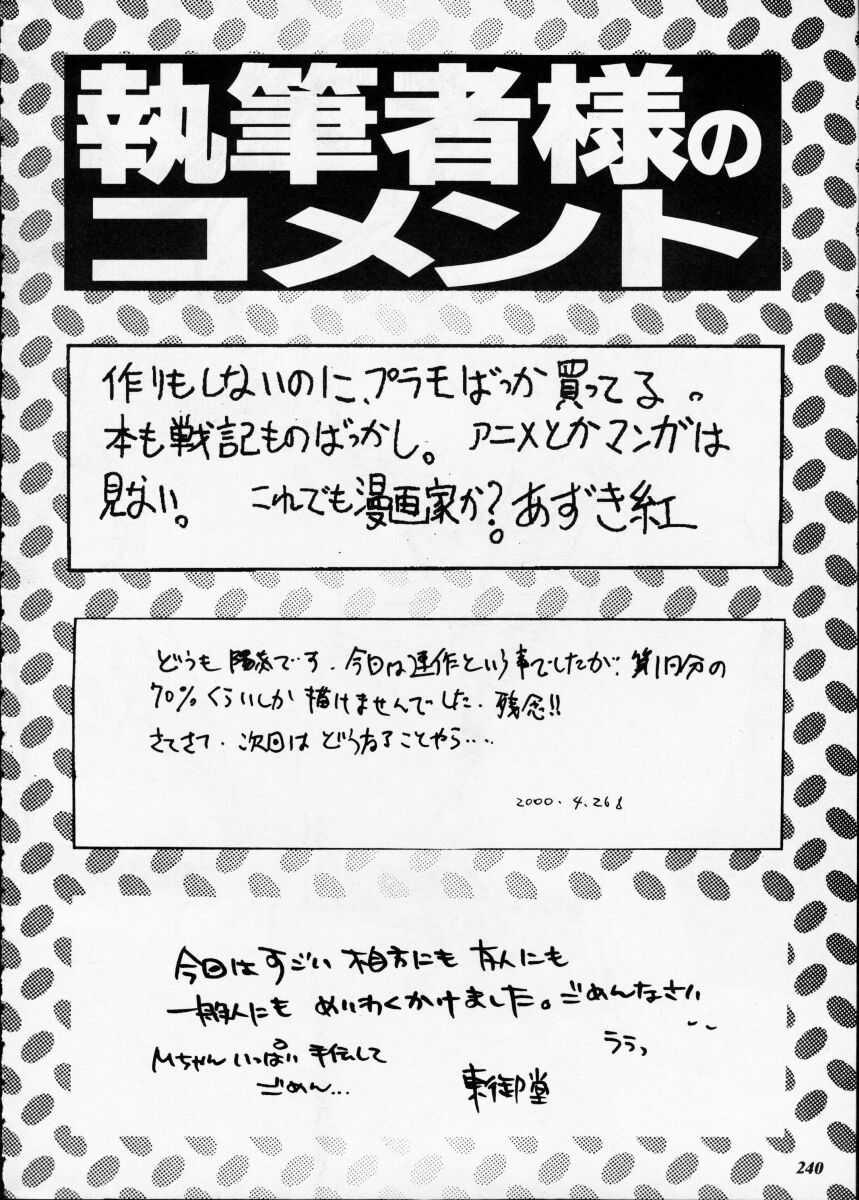 執筆者様の
コメント
作りもしないのに、プラモばっか買ってる。
本も戦記ものばっかし。アニメとかマンガは
見ない。これでも漫画家か?。あずき紅
どうも です。今回は連作という事でしたが、第1回分の
70%くらいしか描けませんでした。残念!!
さてさて、次回はどうなることやら‥‥
2000.4.26
今回はすごい相方にも友人にも
一般人にもめいわくかけました。ごめんなさい
ううっ
Mちゃんいっぱい手伝して
ごめん...
東御堂
240